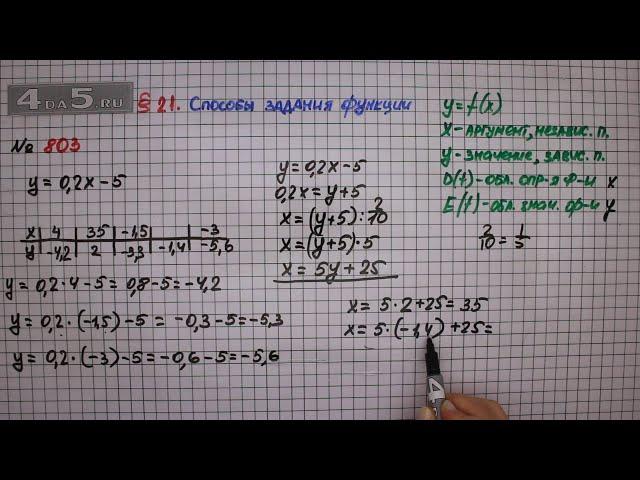 4DA5.RU
§ 21. Способы задания функции
№ 803
y = 0,2x - 5
x | 4 | 35 | -1,5 | | -3
y | -4,2 | 2 | -5,3 | -1,4 | -5,6
y = 0,2 · 4 - 5 = 0,8 - 5 = -4,2
y = 0,2 · (-1,5) - 5 = -0,3 - 5 = -5,3
y = 0,2 · (-3) - 5 = -0,6 - 5 = -5,6
y = 0,2x - 5
0,2x = y + 5
x = (y+5) : 2/10
x = (y+5) · 5
x = 5y + 25
x = 5 · 2 + 25 = 35
x = 5 · (-1,4) + 25 =
y = f(x)
x - аргумент, независ. п.
y - значение, завис. п.
D(f) - обл. опр-я ф-и x
E(f) - обл. знач. ф-и y
2/10 = 1/5